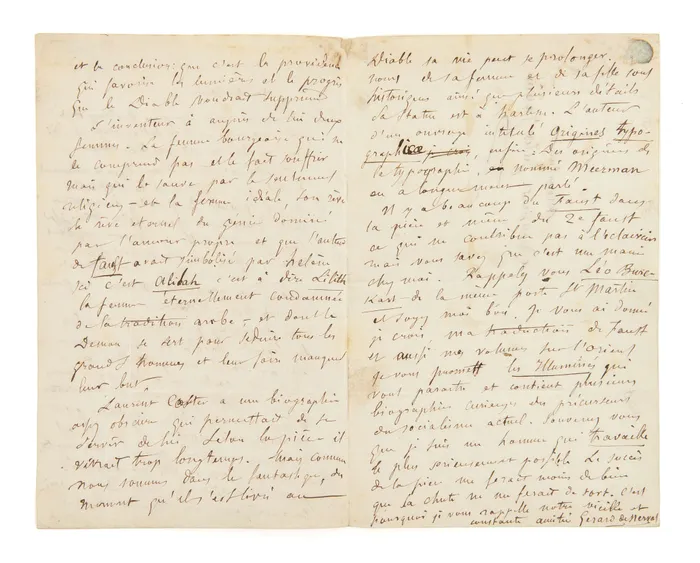 et la conclusion que c'est la providence
qui favorise les lumières et le progrès
que le Diable voudrait supprimer
L'inventeur a auprès de lui deux
femmes. La femme bourgeoise qui ne
le comprend pas et le fait souffrir
mais qui le sauve par le sentiment
religieux — et la femme idéale, son rêve
le rêve eternel du génie dominé
par l'amour propre et que l'auteur
de faust avait symbolisé par helène
ici c'est Alilah c'est à dire Lilith
la femme éternellement condamnée
de la tradition arabe — et dont le
Demon se sert pour seduire tous les
grands hommes et leur faire manquer
leur but.
Laurent Coster a une biographie
assez obscure qui permettait de se
servir de lui. Selon la pièce il
vivrait trop longtemps. Mais comme
nous sommes dans le fantastique, du
moment qu'il s'est livré au
Diable sa vie peut se prolonger.
noms de sa femme et de sa fille sont
historiques ainsi que plusieurs détails
sa statue est à harlem. L'auteur
d'un ouvrage intitulé Origines typo-
graphicæ enfin: Des origines de
la typographie, nommé Meerman
en a longuement parlé.
Il y a beaucoup du Faust dans
la pièce et même du 2e faust
ce qui ne contribue pas à l'éclaircir
mais vous savez que c'est une manie
chez moi. Rappelez vous Léo Burc-
kart de la meme porte St Martin
et soyez moi bon. Je vous ai donné
je crois ma traduction de Faust
et aussi mes volumes sur l'Orient
je vous promets les Illuminés qui
vont paraitre et contient plusieurs
biographies curieuses des précurseurs
du socialisme actuel. Souvenez vous
que je suis un homme qui travaille
le plus serieusement possible Le succès
de la pièce me ferait moins de bien
que la chute ne me ferait de tort. C'est
pourquoi je vous rappelle notre vieille et
constante amitié Gerard de Nerval